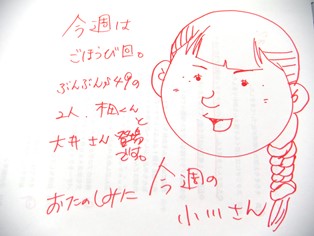 今週は
ごほうび回。
ぶんぶんが49の
2人、柏くんと
大井さん登場
です。
おたのしみに
今週の
小川さん